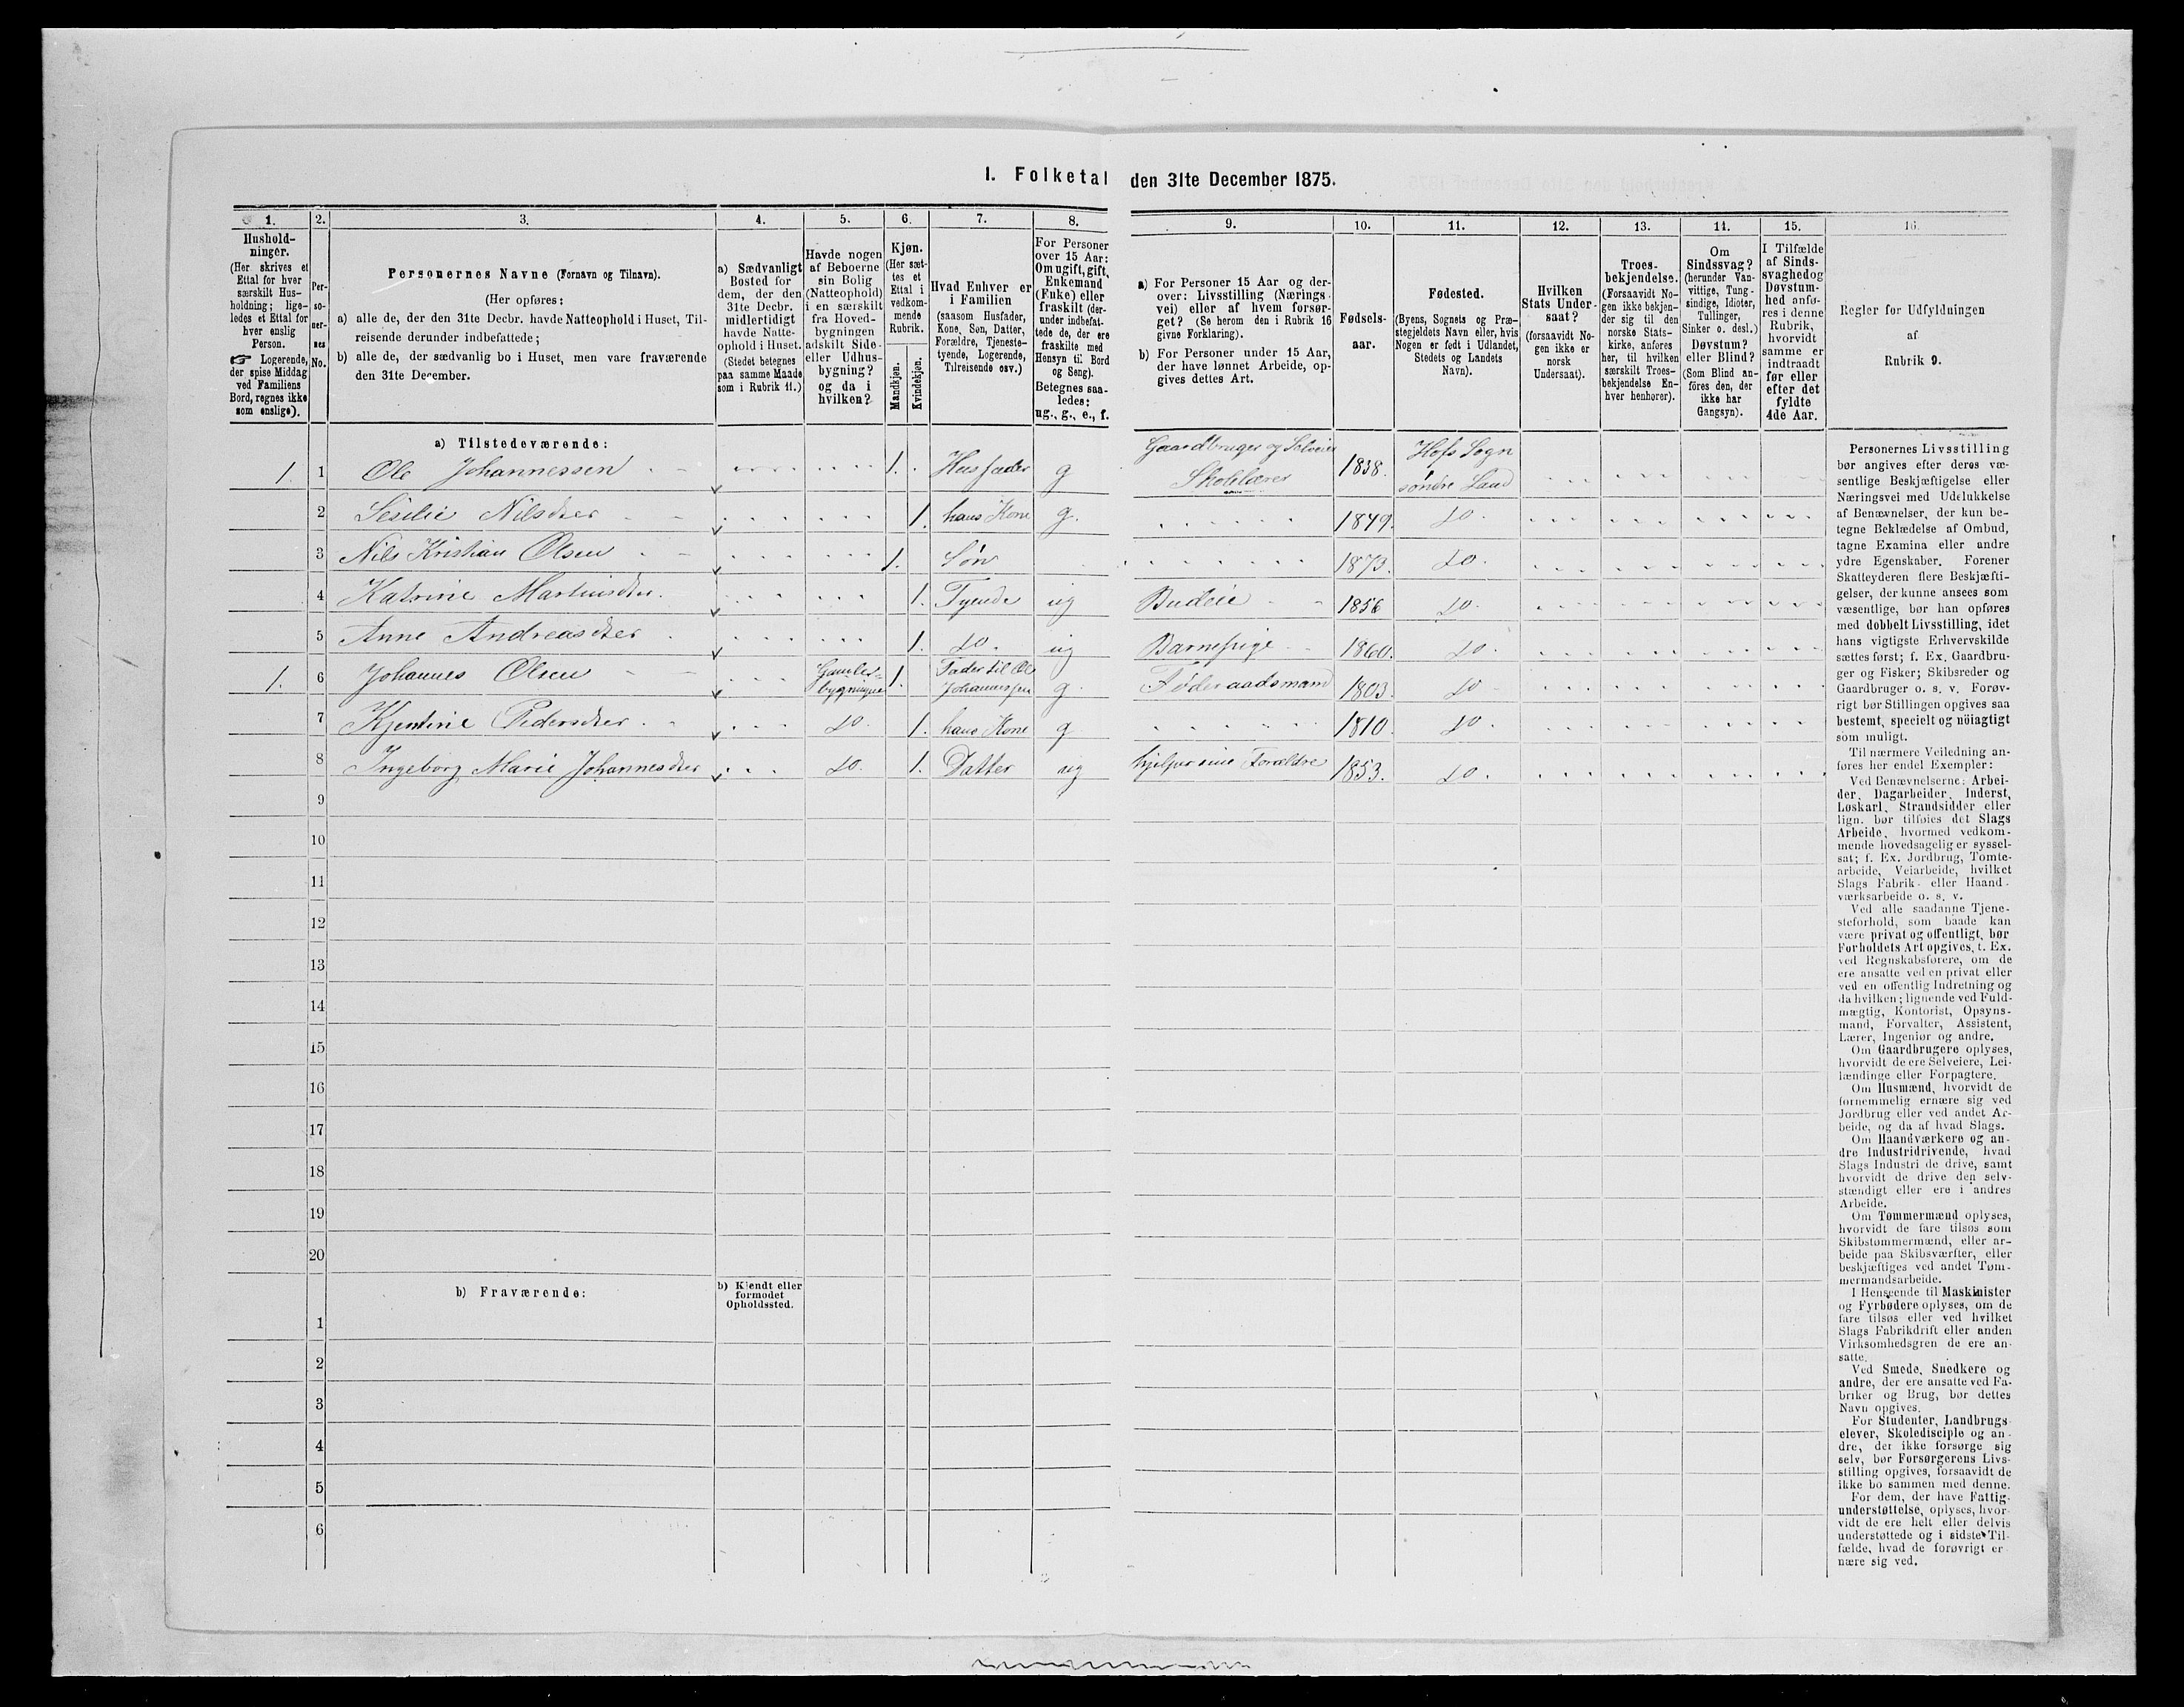 I. Folketal den 31te December 1875.
1. 2. 3. 4. 5. 6. 7. 8. 9. 10. 11. 12. 13. 14. 15. 16.
Hushold-
ninger.
(Her skrives et
Ettal for hver
særskilt Hus-
holdning; lige-
ledes et Ettal for
hver enslig
Person.
☞ Logerende,
der spise Middag
ved Familiens
Bord, regnes ikke
som enslige).
Per-
so-
ner-
nes
No.
Personernes Navne (Fornavn og Tilnavn).
(Her opføres:
a) alle de, der den 31te Decbr. havde Natteophold i Huset, Til-
reisende derunder indbefattede;
b) alle de, der sædvanlig bo i Huset, men vare fraværende
den 31te December.
a) Sædvanligt
Bosted for
dem, der den
31te Decbr.
midlertidigt
havde Natte-
ophold i Huset.
(Stedet betegnes
paa samme Maade
som i Rubrik 11.)
Havde nogen
af Beboerne
sin Bolig
(Natteophold)
i en særskilt
fra Hoved-
bygningen
adskilt Side-
eller Udhus-
bygning?
og da i
hvilken?
Kjøn.
(Her sæt-
tes et
Ettal i
vedkom-
mende
Rubrik.
Mandkjøn.
Kvindekjøn.
Hvad Enhver er
i Familien
(saasom Husfader,
Kone, Søn, Datter,
Forældre, Tjeneste-
tyende, Logerende,
Tilreisende osv.)
For Personer
over 15 Aar:
Om ugift, gift,
Enkemand
(Enke) eller
fraskilt (der-
under indbefat-
tede de, der ere
fraskilte med
Hensyn til Bord
og Seng).
Betegnes saa-
ledes:
ug., g., e., f.
a) For Personer 15 Aar og der-
over: Livsstilling (Nærings-
vei) eller af hvem forsør-
get? (Se herom den i Rubrik 16
givne Forklaring).
b) For Personer under 15 Aar,
der have lønnet Arbeide, op-
gives dettes Art.
Fødsels-
aar.
Fødested.
(Byens, Sognets og Præ-
stegjeldets Navn eller, hvis
Nogen er født i Udlandet,
Stedets og Landets
Navn).
Hvilken
Stats Under-
saat?
(forsaavidt No-
gen ikke er
norsk
Undersaat).
Troes-
bekjendelse.
(Forsaavidt No-
gen ikke bekjen-
der sig til den
norske Stats-
kirke, anføres
her, til hvilken
særskilt Troes-
bekjendelse En-
hver henhører).
Om
Sindssvag?
(herunder Van-
vittige, Tung-
sindige, Idioter,
Tullinger,
Sinker o. desl.)
Døvstum?
eller Blind?
(Som Blind an-
föres den, der
ikke har
Gangsyn).
I Tilfælde
af Sinds-
svaghed og
Døvstum-
hed anfø-
res i denne
Rubrik,
hvorvidt
samme er
indtraadt
før eller
efter det
fyldte
4de Aar.
Regler for Udfyldningen
af
Rubrik 9.
a) Tilstedeværende:
1. 1 Ole Johannessen 1. Husfader g Gaardbruger og Selveier Skolelærer 1838. Hofs Sogn søndre Land
2 Sesilie Nilsdter 1. hans Kone g. 1849. do.
3 Nils Kristian Olsen 1. Søn 1873. do.
4 Katrine Martinsdter. 1. Tyende ug Budeie 1856 do.
5 Anne Andreasdter 1. do. ug Barnepige 1860. do.
1. 6 Johannes Olsen Gamlebygningen 1. Fader til Ole Johannessen g. Føderaadsmand 1803. do
7 Kjentine Pedersdter. do. 1. hans Kone g 1810. do.
8 Ingeborg Marie Johannesdter do. 1. Datter ug hjelper sine Forældre 1853. do.
9
10
11
12
13
14
15
16
17
18
19
20
b) Fraværende:
b) Kjendt eller
formodet
Opholdssted.
1
2
3
4
5
6
Personernes Livsstilling
bør angives efter deres væ-
sentlige Beskjæftigelse eller
Næringsvei med Udelukkelse
af Benævnelser, der kun be-
tegne Beklædelse af Ombud,
tagne Examina eller andre
ydre Egenskaber. Forener
Skatteyderen flere Beskjæfti-
gelser, der kunne ansees som
væsentlige, bør han opføres
med dobbelt Livsstilling, idet
hans vigtigste Erhvervskilde
sættes først; f. Ex. Gaardbru-
ger og Fisker; Skibsreder og
Gaardbruger o. s. v. Forøv-
rigt bør Stillingen opgives saa
bestemt, specielt og nöiagtigt
som muligt.
Til nærmere Veiledning an-
føres her endel Exempler:
Ved Benævnelserne: Arbei-
der, Dagarbeider, Inderst,
Løskarl, Strandsidder eller
lign. bør tilføies det Slags
Arbeide, hvormed vedkom-
mende hovedsagelig er syssel-
sat; f. Ex. Jordbrug, Tomte-
arbeide, Veiarbeide, hvilket
Slags Fabrik- eller Haand-
værksarbeide o. s. v.
Ved alle saadanne Tjene-
steforhold, som baade kan
være privat og offentligt, bør
Forholdets Art opgives, t. Ex.
ved Regnskabsførere, om de
ere ansatte ved en privat eller
ved en offentlig Indretning og
da hvilken; lignende ved Fuld-
mægtig, Kontorist, Opsyns-
mand, Forvalter, Assistent,
Lærer, Ingeniør og andre.
Om Gaardbrugere oplyses,
hvorvidt de ere Selveiere, Lei-
lændinge eller Forpagtere.
Om Husmænd, hvorvidt de
fornemmelig ernære sig ved
Jordbrug eller ved andet Ar-
beide, og da af hvad Slags.
Om Haandværkere og an-
dre Industridrivende, hvad
Slags Industri de drive, samt
hvorvidt de drive den selv-
stændigt eller ere i andres
Arbeide.
Om Tømmermænd oplyses,
hvorvidt de fare tilsøs som
Skibstømmermænd, eller ar-
beide paa Skibsværfter, eller
beskjæftiges ved andet Tøm-
mermandsarbeide.
I Henseende til Maskinister
og Fyrbødere oplyses, om de
fare tilsøs eller ved hvilket
Slags Fabrikdrift eller anden
Virksomhedsgren de ere an-
satte.
Ved Smede, Snedkere og
andre, der ere ansatte ved Fa-
briker og Brug, bør dettes
Navn opgives.
For Studenter, Landbrugs-
elever, Skoledisciple og an-
dre, der ikke forsørge sig
selv, bør Forsørgerens Livs-
stilling opgives, forsaavidt de
ikke bo sammen med denne.
For dem, der have Fattig-
understøttelse, oplyses, hvor-
vidt de ere helt eller delvis
understøttede og i sidste Til-
fælde, hvad de forøvrigt er-
nære sig ved.